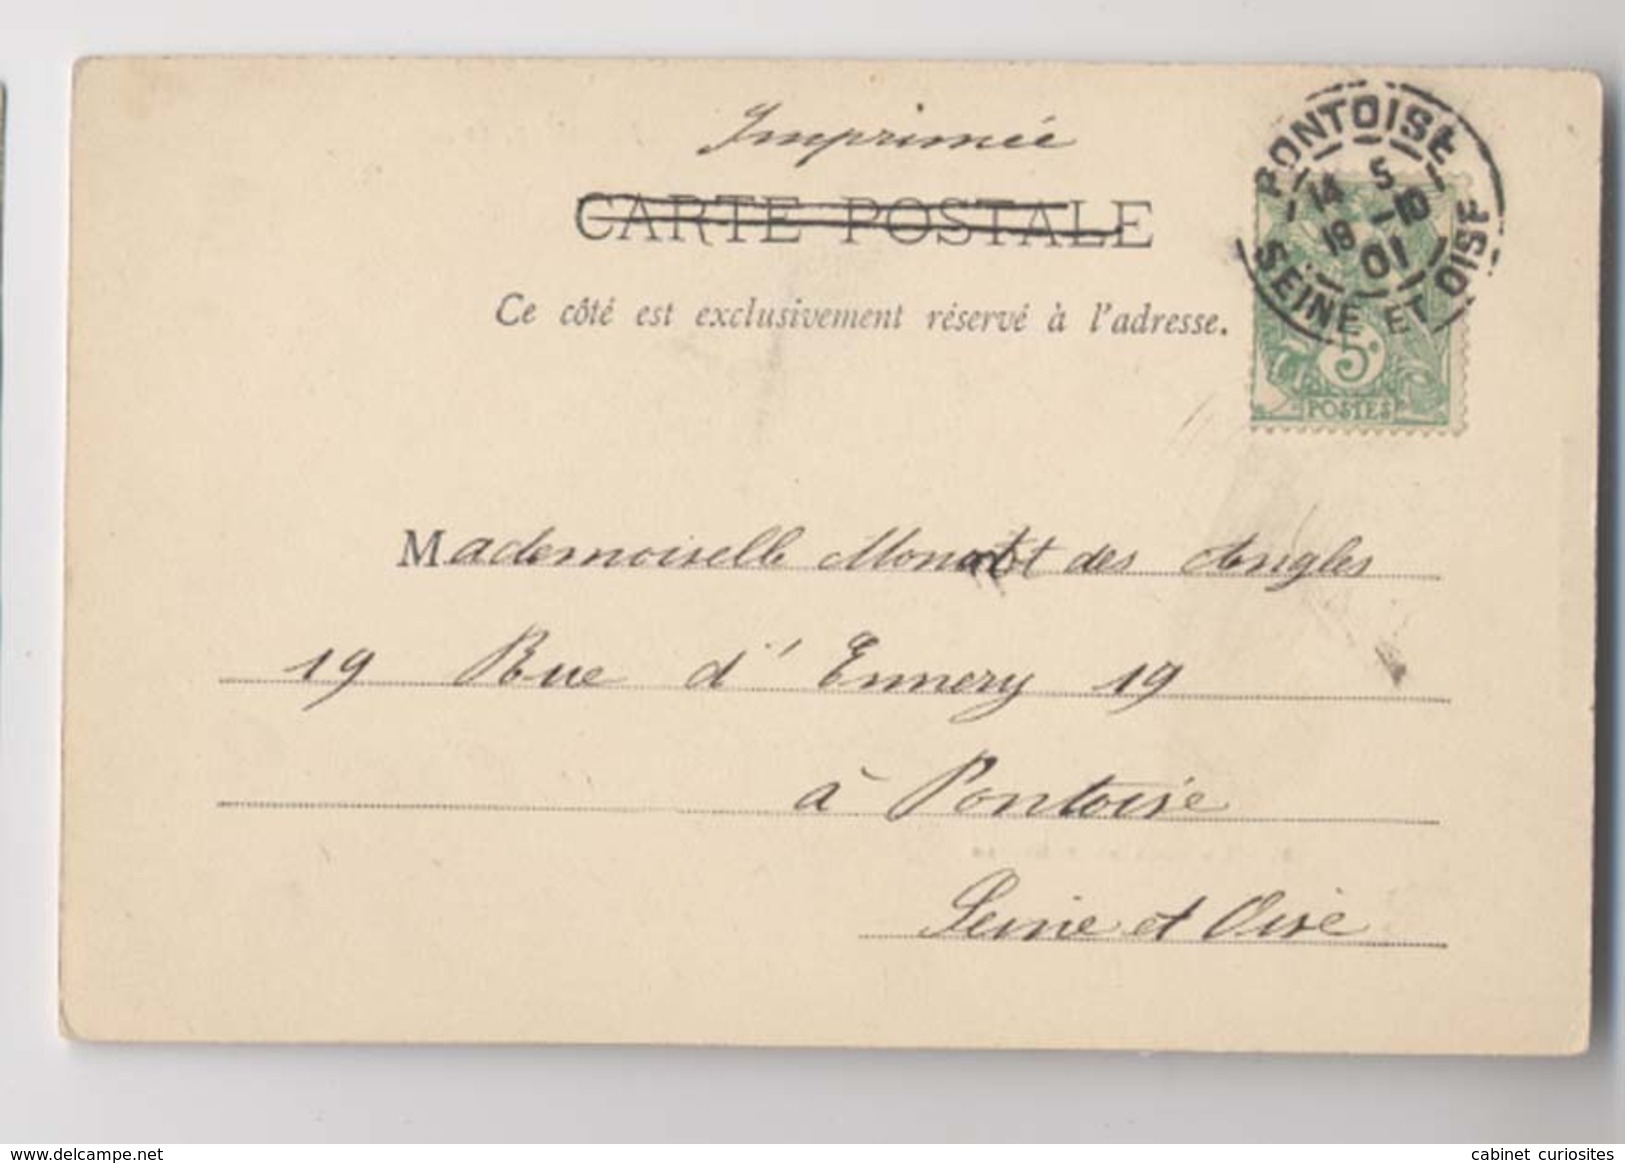 Imprimée
CARTE POSTALE
Ce côté est exclusivement réservé à l'adresse.
PONTOISE
14 5
18 -10
01
SEINE ET OISE
5c
POSTES
Mademoiselle des Angles
19 Rue d'Ennery 19
à Pontoise
Seine et Oise
www.delcampe.net
cabinet curiosites